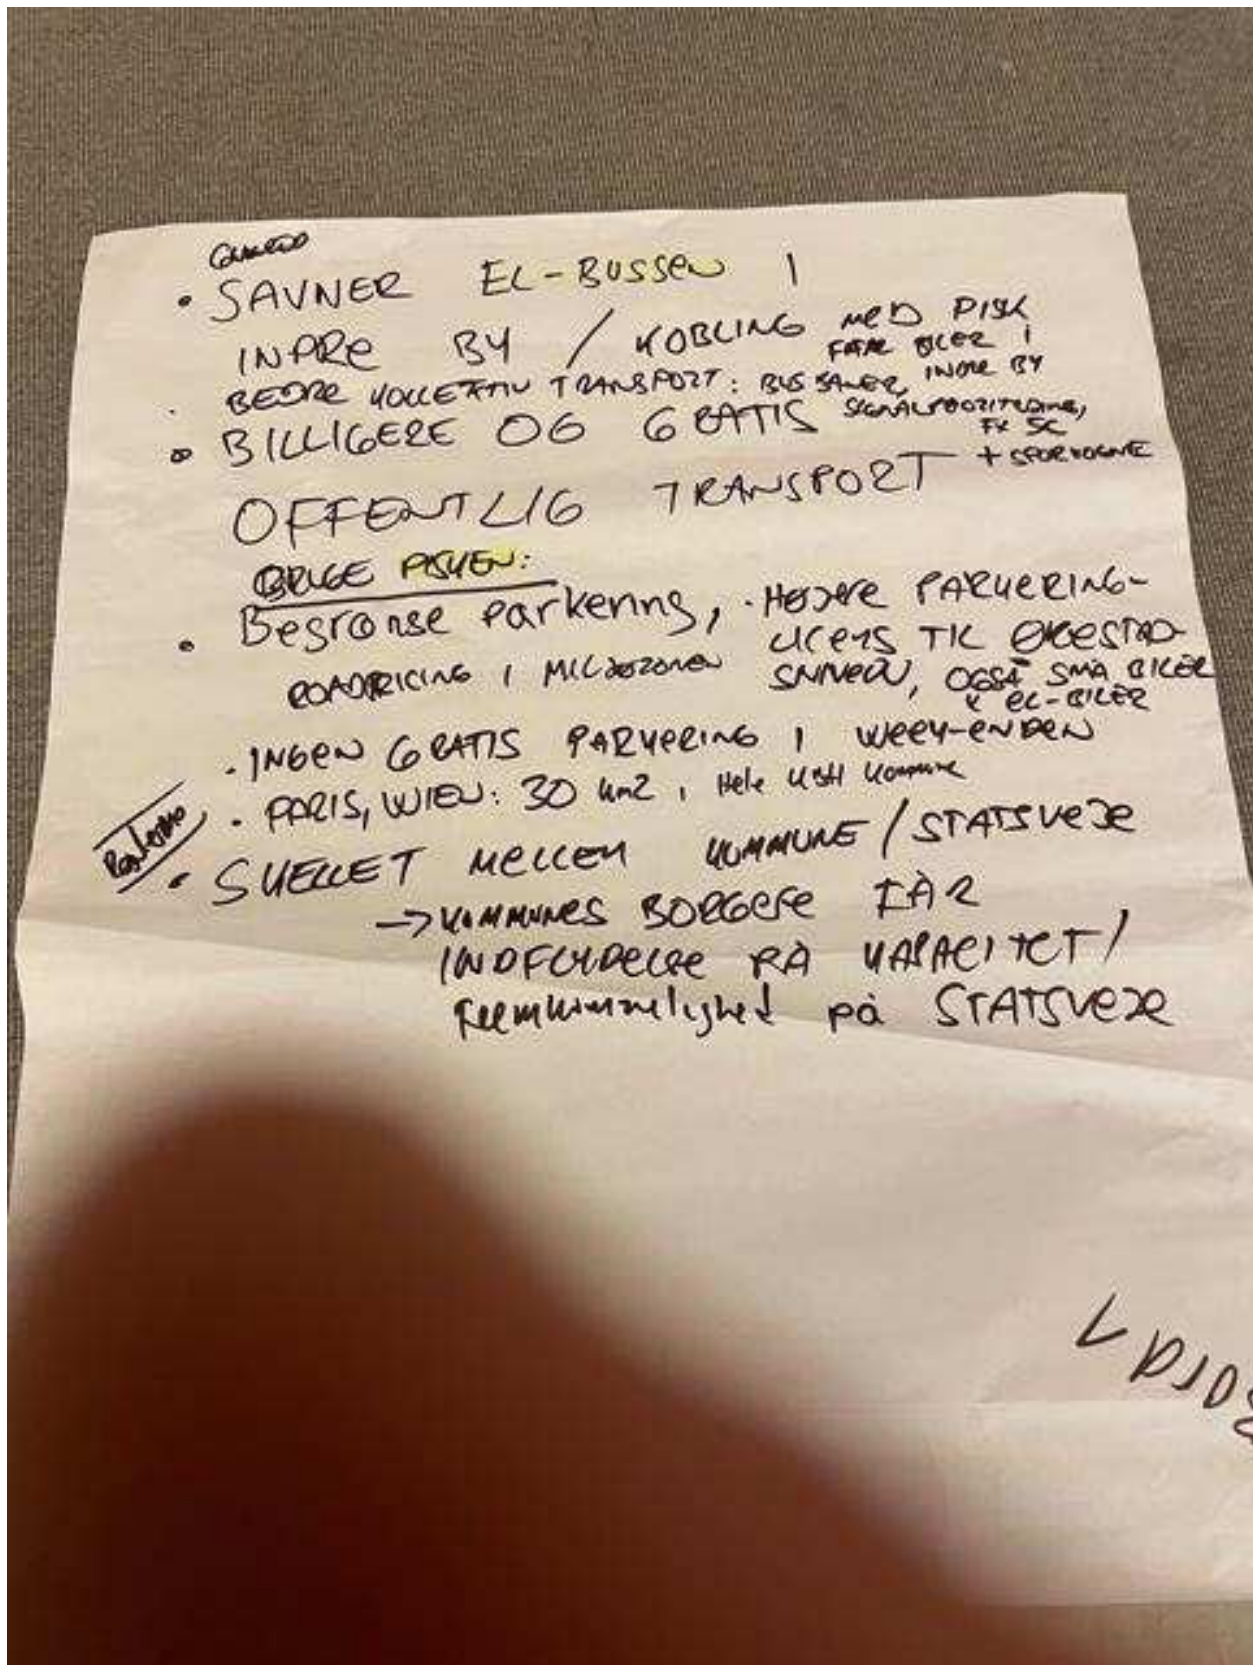 • SAVNER EL-BUSSEN I
INDRE BY / KOBLING MED PISK
FÆRRE BILER I
INDRE BY
• BEDRE KOLLEKTIV TRANSPORT: BUSBANER,
SIGNALPRIORITERING,
FX 5C
+ SPORVOGNE
• BILLIGERE OG GRATIS
OFFENTLIG TRANSPORT
BRUGE PISKEN:
• Begrænse parkering,
ROADPRICING I MILJØZONEN
• HØJERE PARKERING-
LICENS TIL
SNIVEAU, OGSÅ SMÅ BILER
& EL-BILER
• INGEN GRATIS PARKERING I WEEK-ENDEN
• PARIS, WIEN: 30 km2, Hele KBH Kommune
• SKELLET MELLEM KOMMUNE / STATSVEJE
→ KOMMUNES BORGERE FÅR
INDFLYDELSE PÅ KAPACITET /
fremkommelighed på STATSVEJE
Bord 1